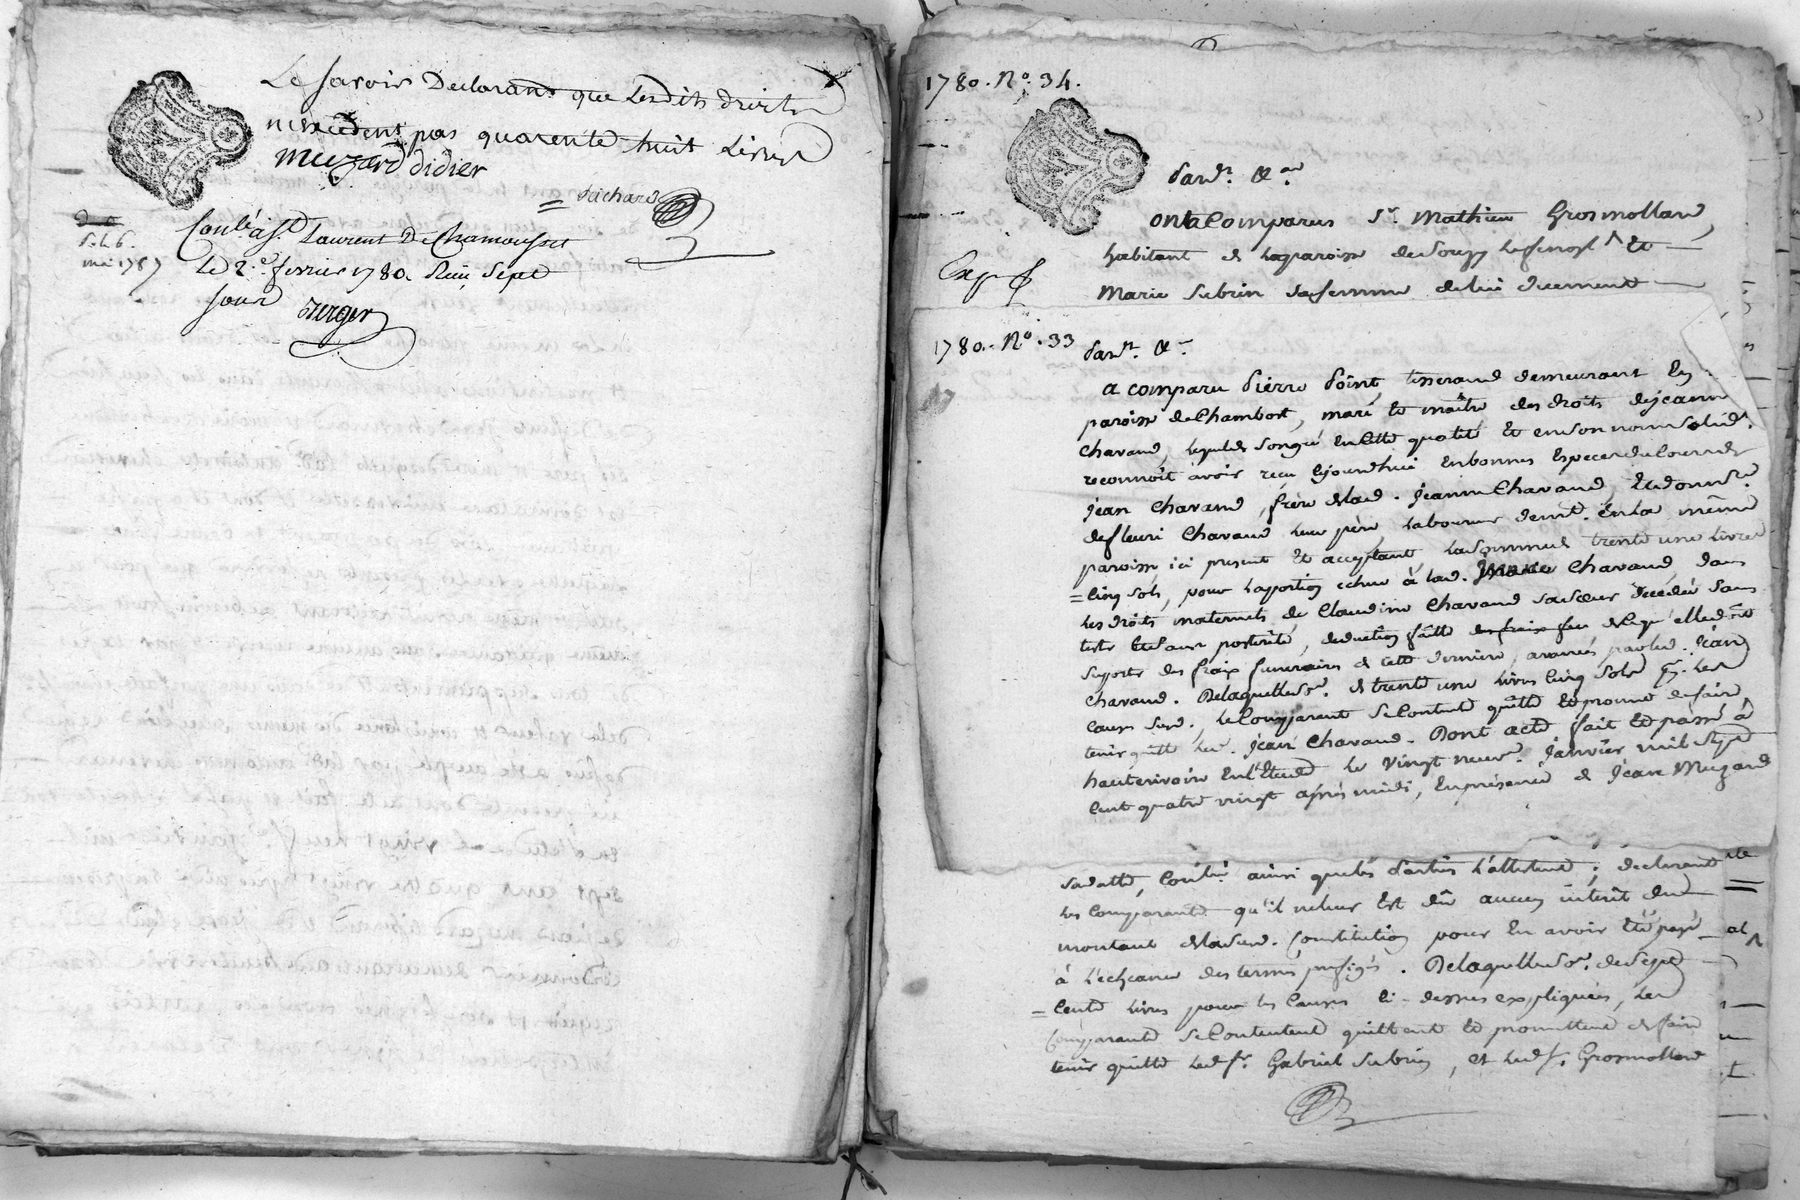 Le savoir Declarans que lesdits droits
nexcedent pas quarente huit Livres
muzard didier
Pachard
S. L. 6.
mai 1787
Conlé à St Laurent De Chamousset
Le 2e fevrier 1780. Reçu Sept
sous
verger
1780. No. 34.
Pardt. &a.
ont Comparus Sr. Mathieu Grosmolland,
habitant de la paroisse de Souzy et
Marie Subrin sa femme de lui duement
Exp
1780. No. 33
Pardt. &a
a comparu Pierre Point, tisserand demeurant en
paroisse de Chambost, mari et maître des droits de jeanne
Chavand, lequel de son gré en cette qualité et en son nom solidt.
reconnoît avoir reçu ce jourdhui en bonnes especes du cours de
jean Chavand, frère de lad. jeanne Chavand, et donatre.
de fleuri Chavand leur père laboureur demt. en la même
paroisse ici present et acceptant la somme de trente une livres
cinq sols, pour la portion echue à lad. Chavand, dans
les droits maternels de Claudine Chavand sa sœur décedée sans
tests et sans posterité, deduction faitte des frais fu de ce qu'elle doit
suporter des frais funeraires de cette derniere, avancés par led. jean
Chavand. De laquelle se. de trente une livres cinq sols pr. les
causes susd. le Comparant se Contente quitte et promet de faire
tenir quitte led. jean Chavand. Dont acte fait et passé à
hauterivoire en l'Etude le vingt neuf. janvier mil sept
cent quatre vingt après midi, en présence de jean Muzard
sa datte, Conlé. ainsi que les parties l'attestent; declarant
les Comparants qu'il ne leur est dû aucun interêt du
montant de lad. Constitution pour en avoir été payé
à l'echeance des termes prefigés. De laquelle se. de sept
cents livres pour les Causes ci-dessus expliquées, les
Comparants se Contentent quittent et promettent de faire
tenir quitte led. sr. Gabriel Subrin, et led. s. Grosmolland